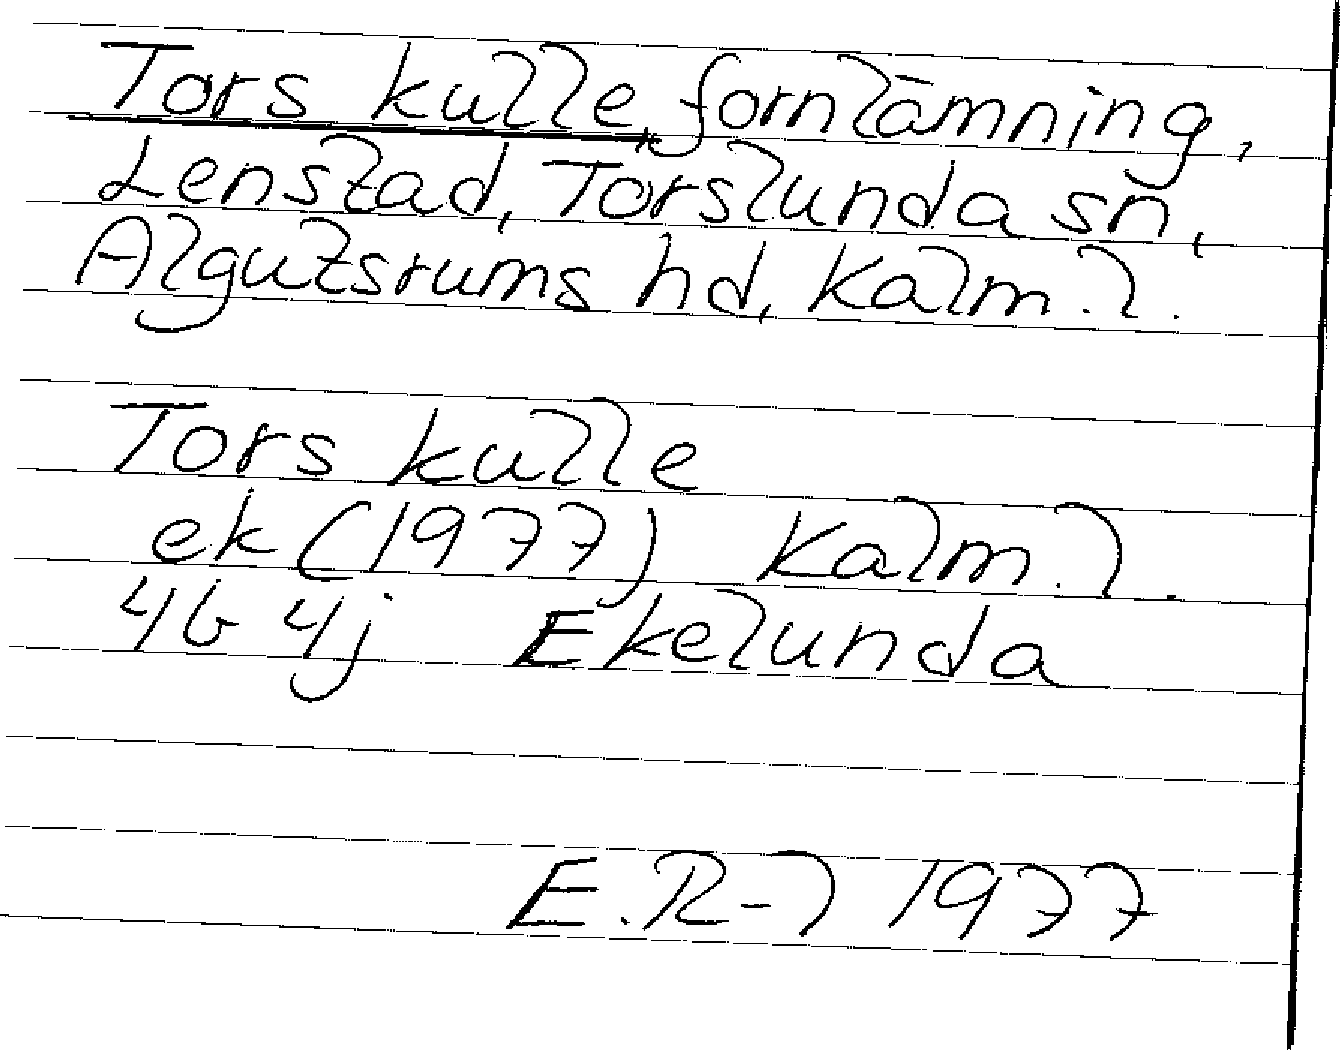 Tors kulle, fornlämning,
Lenstad, Torslunda sn,
Algutsrums hd, Kalm. l.
Tors kulle
ek (1977) Kalm. l.
4G 4j Ekelunda
E. R-l 1977